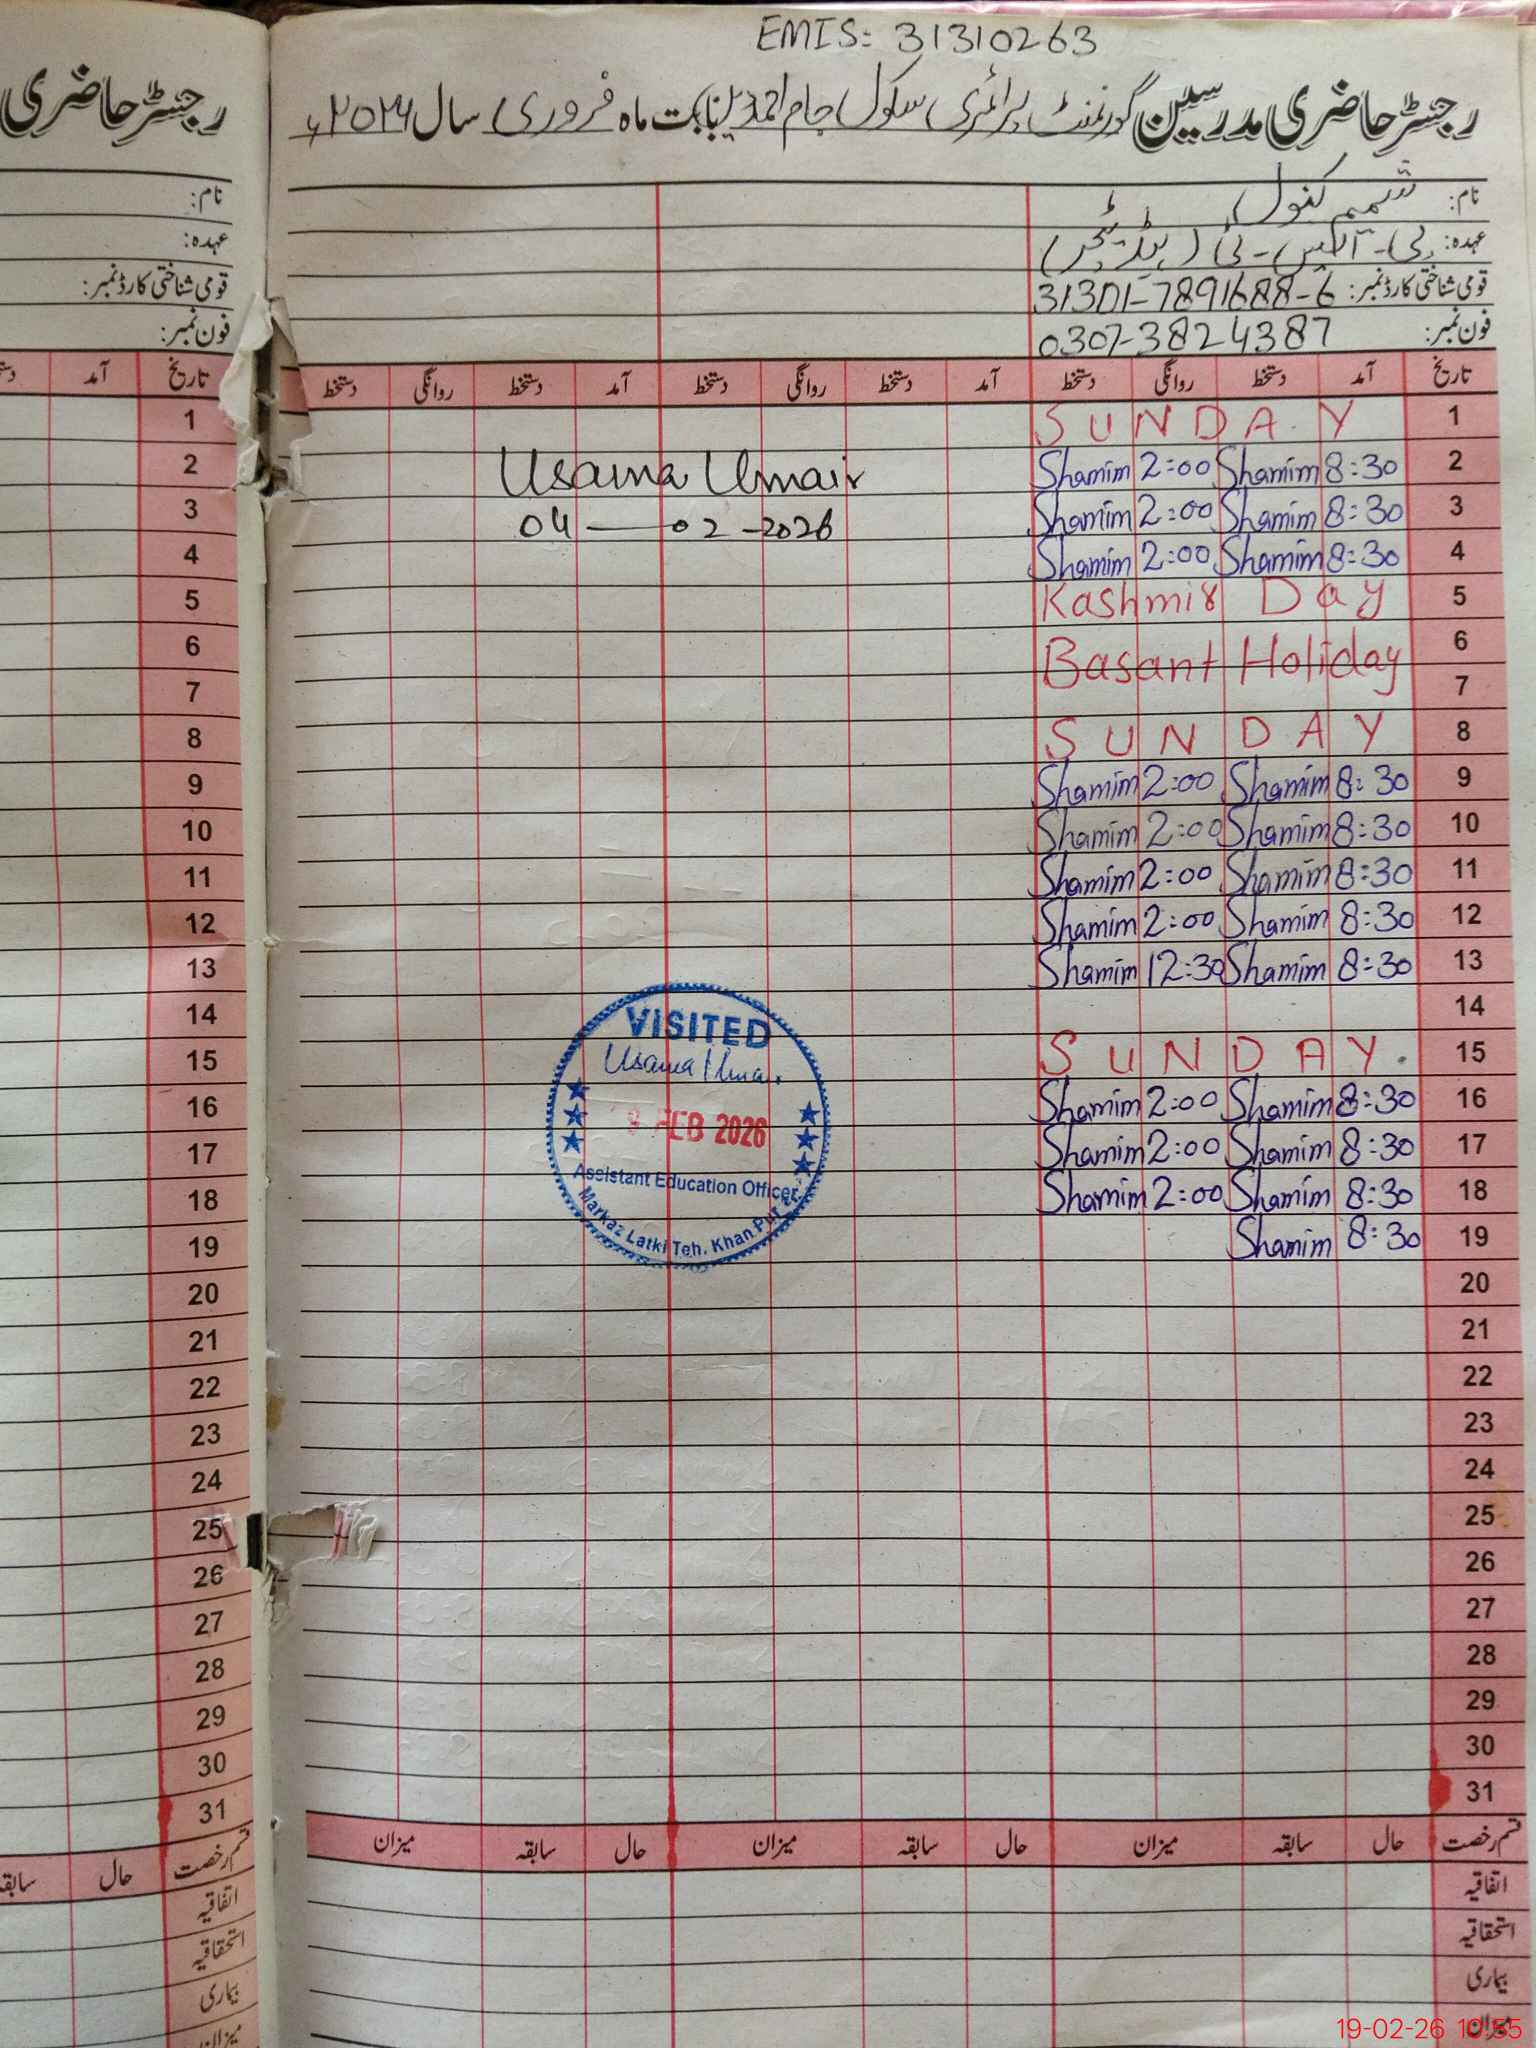 EMIS: 31310263
رجسٹر حاضری مدرسین گورنمنٹ پرائمری سکول جام احمد دین بابت ماہ فروری سال ۲۰۲۶ء
نام: شمیم کنول
عہدہ: پی-ایس-ٹی (ہیڈ ٹیچر)
قومی شناختی کارڈ نمبر: 31301-7891688-6
فون نمبر: 0307-3824387
تاریخ آمد دستخط روانگی دستخط آمد دستخط روانگی دستخط آمد دستخط روانگی دستخط
1 SUNDAY
2 8:30 Shamim 2:00 Shamim
Usama Umair
3 8:30 Shamim 2:00 Shamim
04-02-2026
4 8:30 Shamim 2:00 Shamim
5 Kashmir Day
6 Basant Holiday
7
8 SUNDAY
9 8:30 Shamim 2:00 Shamim
10 8:30 Shamim 2:00 Shamim
11 8:30 Shamim 2:00 Shamim
12 8:30 Shamim 2:00 Shamim
13 8:30 Shamim 12:30 Shamim
14
15 SUNDAY.
16 8:30 Shamim 2:00 Shamim
17 8:30 Shamim 2:00 Shamim
18 8:30 Shamim 2:00 Shamim
19 8:30 Shamim
20
21
22
23
24
25
26
27
28
29
30
31
VISITED
FEB 2026
Assistant Education Officer
Markaz Latki Teh. Khan Pur
قسم رخصت حال سابقہ میزان حال سابقہ میزان حال سابقہ میزان
اتفاقیہ
استحقاقیہ
بیماری
میزان
رجسٹر حاضری
نام:
عہدہ:
قومی شناختی کارڈ نمبر:
فون نمبر:
تاریخ آمد
1
2
3
4
5
6
7
8
9
10
11
12
13
14
15
16
17
18
19
20
21
22
23
24
25
26
27
28
29
30
31
قسم رخصت حال سابقہ
اتفاقیہ
استحقاقیہ
بیماری
میزان
19-02-26 10:55